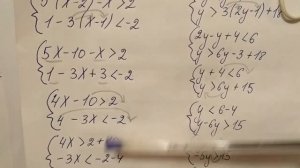 5(X-2)-X>2
1-3(X-1)<-2
5X-10-X>2
1-3X+3<-2
4X-10>2
4-3X<-2
4X>2+
-3X<-2-4
y>3(2y-1)+18
2y-y+4<6
y>6y-3+18
y+4<6
y>6y+15
y<6-4
y-6y>15
-5y>15